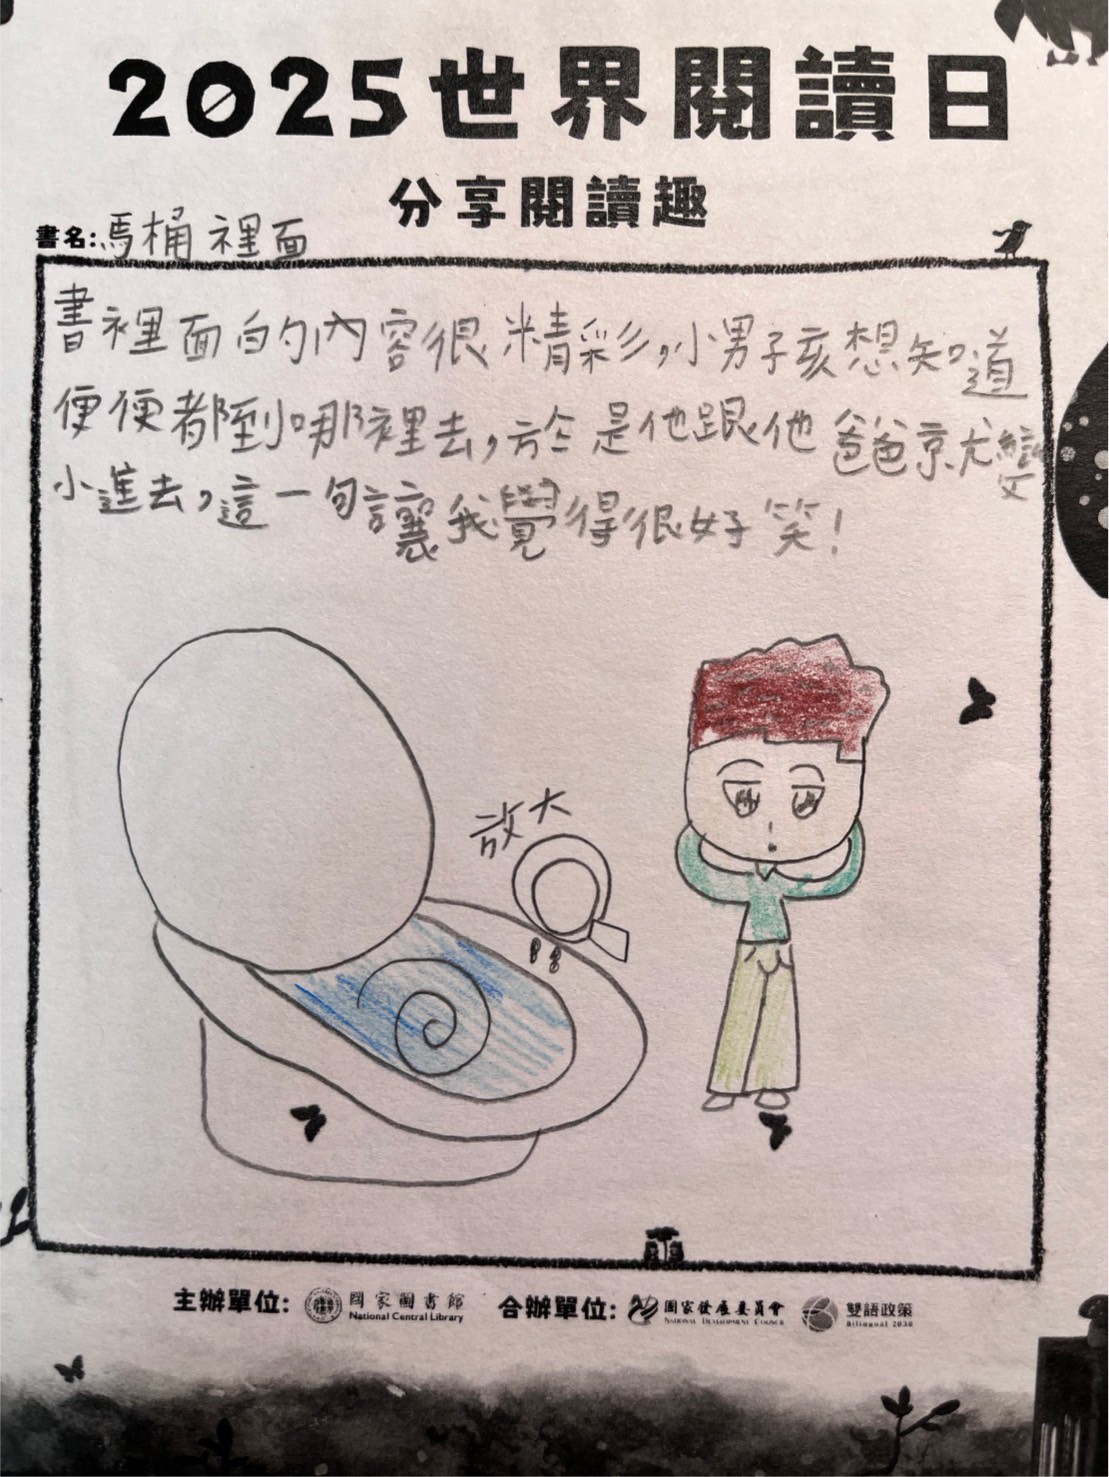 2025世界閱讀日
分享閱讀趣
書名:馬桶裡面
書裡面的內容很精彩,小男孩想知道
便便都到哪裡去,於是他跟他爸爸就變
小進去,這一句讓我覺得很好笑!
放大
主辦單位: 國家圖書館 National Central Library 合辦單位: 國家發展委員會 NATIONAL DEVELOPMENT COUNCIL 雙語政策 Bilingual 2030